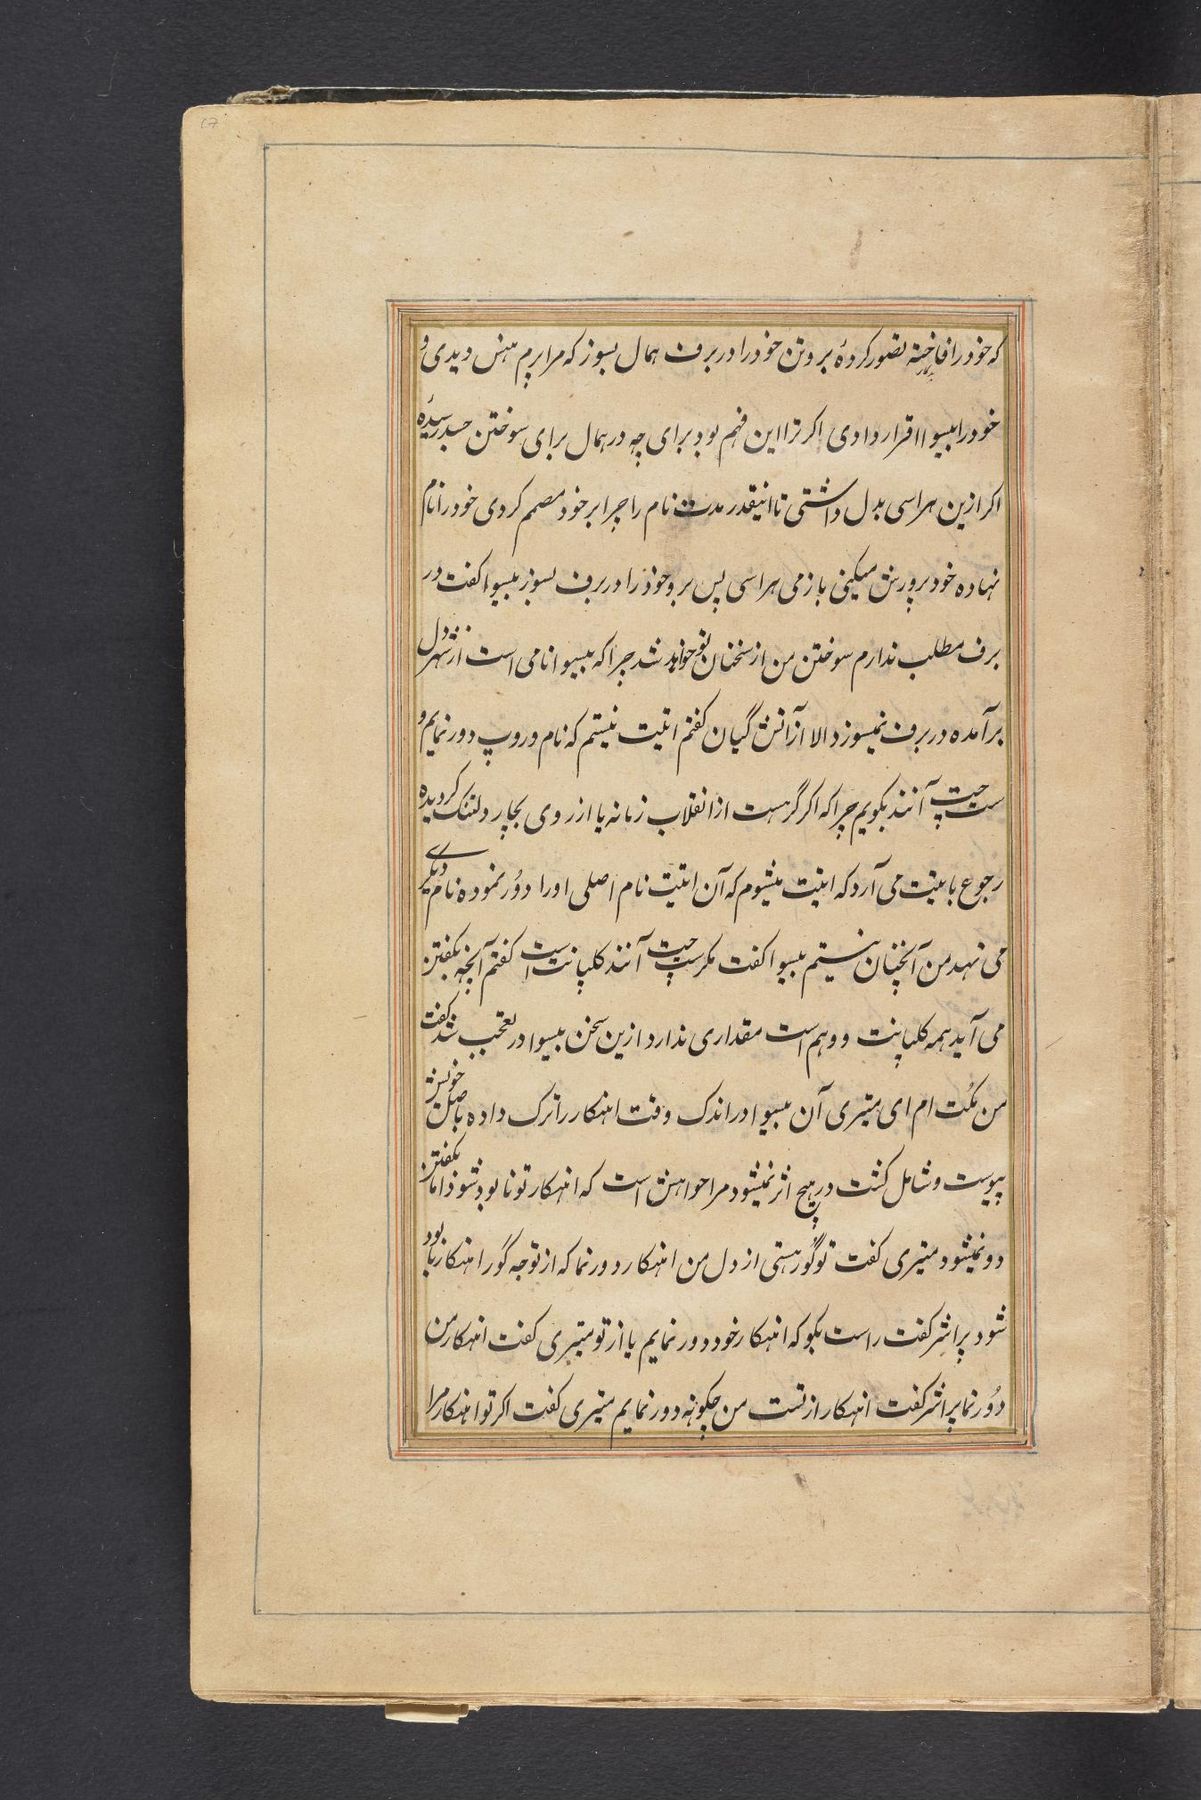 که خود را فاخته تصور کردهٔ برو تن خود را در برف همال بسوز که مرا برم هنس دیدی و
خود را بیسوا اقرار دادی اکر ترا این فهم بود برای چه در همال برای سوختن جسد رسیدهٔ
اکر ازین هراسی بدل داشتی تا اینقدر مدت نام را چرا بر خود مصمم کردی خود را نام
نهاده خود پرورش میکنی باز می هراسی پس برو خود را در برف بسوز بیسوا کفت در
برف مطلب ندارم سوختن من از سخنان تو خواهد شد چرا که بیسوا نامی است از شهر دل
برآمده در برف نمیسوزد الا از آتش گیان کفتم انیت نیستم که نام و روپ دور نمایم و
ست چت آنند بکویم چرا که اکر گرهست از انقلاب زمانه یا از روی بچار دلتنک کردیده
رجوع با بیت می آرد که انیت میشوم که آن انیت نام اصلی او را دور نموده نام دیکری
می نهد من آنچنان نیستم بیسوا کفت مکر ست چت آنند کلپانت است کفتم آنچه بکفتن
می آید همه کلپانت و وهم است مقداری ندارد ازین سخن بیسوا در تعجب شد کفت
من مکت ام ای میتری آن بیسوا در اندک وقت اهنکار را ترک داده باصل خویش
پیوست و شامل کشت در هیچ اثر نمیشود مرا خواهش است که اهنکار تو نابود شود اما بکفتن
دو نمیشود میتری کفت تو گور هستی از دل من اهنکار دور نما که از توجه گور اهنکار نابود
شود پراشر کفت راست بکو که اهنکار خود دور نمایم یا از تو میتری کفت اهنکار من
دور نما پراشر کفت اهنکار از تست من چکونه دور نمایم میتری کفت اکر تو اهنکار مرا